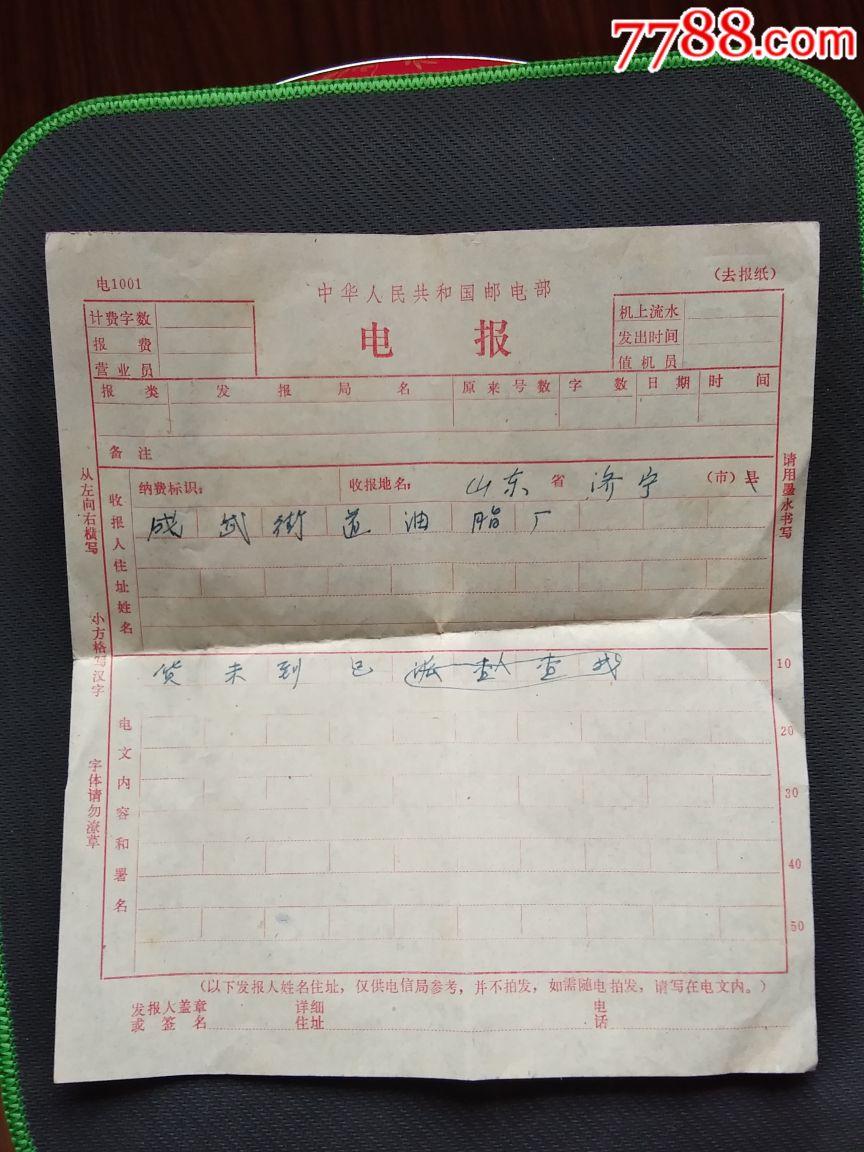 7788.com
电1001
(去报纸)
中华人民共和国邮电部
电报
计费字数
报费
营业员
机上流水
发出时间
值机员
报类 发报局名 原来号数 字数 日期 时间
备注
纳费标识： 收报地名： 山东省 济宁 (市)县
收报人住址姓名
成武街道油脂厂
货未到已派人查找
电文内容和署名
10
20
30
40
50
从左向右横写
小方格写汉字
字体请勿潦草
请用墨水书写
(以下发报人姓名住址，仅供电信局参考，并不拍发，如需随电拍发，请写在电文内。)
发报人盖章 详细 电
或签名 住址 话